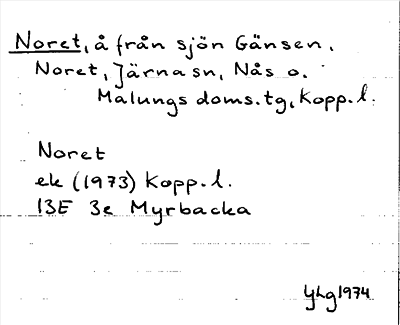 Noret, å från sjön Gänsen.
Noret, Järna sn, Nås o.
Malungs doms.tg, Kopp.l.
Noret
ek (1973) Kopp.l.
13E 3e Myrbacka
YLg 1974